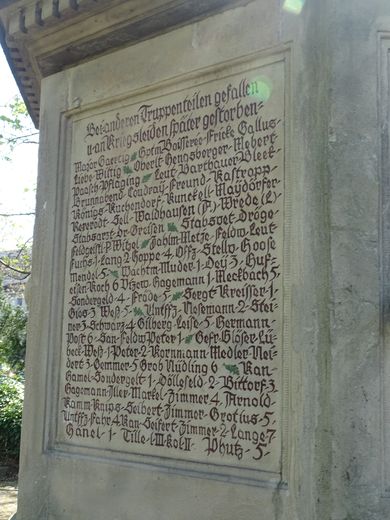 Bei anderen Truppenteilen gefallen
u · an Kriegsleiden später gestorben =
Major Goerriz Hptm Boisseree · Fricke Gallus ·
Liebe · Wittig Oberlt Hengsberger · Mebert
Paasch · Pflaging Leut · Barthauer · Bleek ·
Brunnabend Loudray · Freund · Kastropp ·
Königs · Kuchendorf · Kunckell · Maydorfer
Reserodt · Sell · Waldhausen (P) · Wrede (L) ·
Stabsarzt Dr · Greisen Stabsvet · Dröge
Feldgeistl · P Witzel Zahlm · Metze Feldw · Leut
Fuchs · 1 · Lang 2 Poppe · 4 · Offz · Stellv · Goose
Mendel · 5 Wachtm · Muder · 1 · Dey · 3 · Huf =
eisen · Koch 6 Vizew · Gagemann 1 · Meckbach 5 ·
Sondergeld · 4 · Frode · 5 Sergt · Kreisser · 1 ·
Glos · 3 Weß · 5 Untffz · Niesemann · 2 · Stei =
ner · 3 · Schwarz · 4 Gilberg · Leise · 5 · Germann ·
Vost 6 · San · Feldw · Peter 1 Gefr · Gloser · Lü =
beck · Weß · 1 · Peter · 2 · Kornmann · Medler · Nei =
dert · 3 · Gemmer · 5 Grob Nüdling 6 Kan ·
Gamel · Sondergelt 1 · Dölleseld · 2 · Bittorf · 3 ·
Gagemann · Iller · Markel · Zimmer 4 · Arnold
Kamm · Knips · Seibert Zimmer · Grotius · 5 ·
Untffz · Fahr · 4 · Kan · Seifert · Zimmer · 2 · Lange · 7
Hänel · 1 · Tille · l · III · Kol · II · Phutz · 5 ·